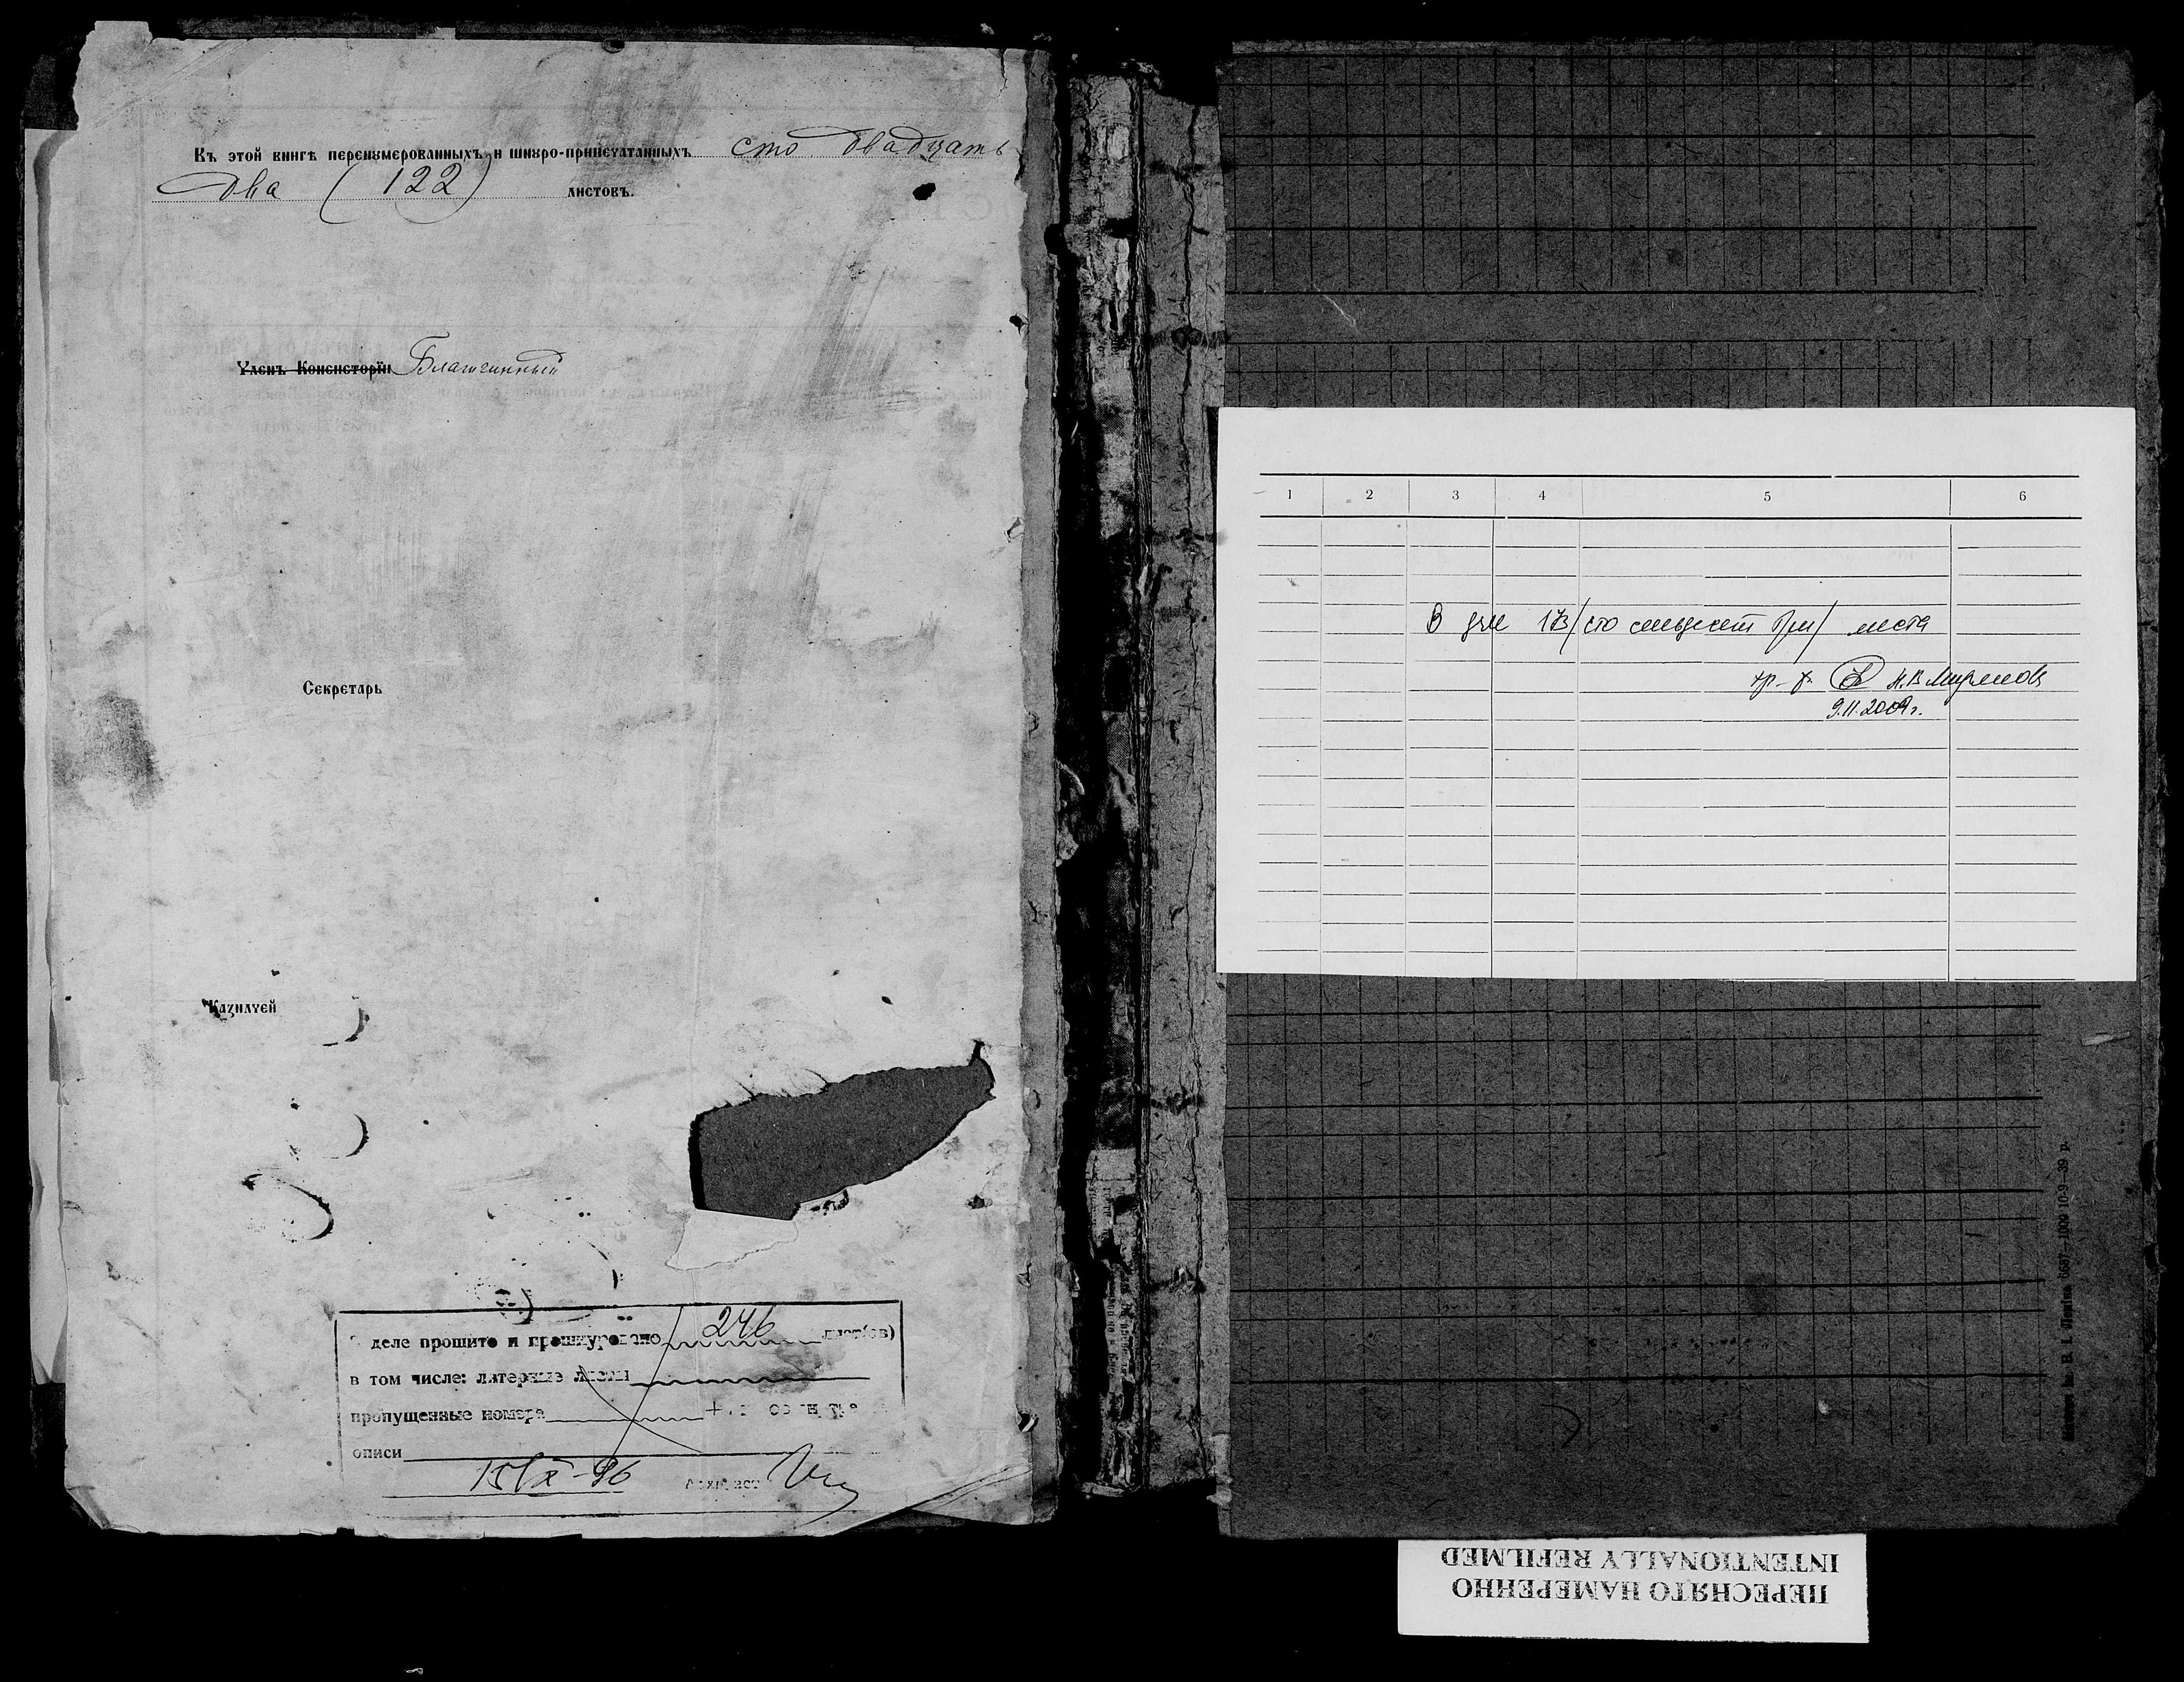 Къ этой книгѣ перенумерованныхъ и шнуро-припечатанныхъ сто двадцать
два (122) листовъ.
Членъ Консисторіи Благочинный
Секретарь
Казначей
деле прошито и прошнуровано 246 лист(ов)
в том числе: литерные листы
пропущенные номера
описи
15/IX-96 Архивист
1 2 3 4 5 6
В деле 173/сто семьдесят три/ листа
9.11.2009г.
6687-1000 10-9-39 р.
ПЕРЕСНЯТО НАМЕРЕННО
INTENTIONALLY REFILMED